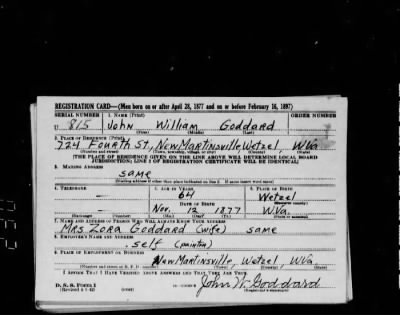 REGISTRATION CARD—(Men born on or after April 28, 1877 and on or before February 16, 1897)
SERIAL NUMBER 1. NAME (Print) ORDER NUMBER
U 815 John William Goddard
(First) (Middle) (Last)
2. PLACE OF RESIDENCE (Print)
724 Fourth St, New Martinsville Wetzel, WVa
(Number and street) (Town, township, village, or city) (County) (State)
[THE PLACE OF RESIDENCE GIVEN ON THE LINE ABOVE WILL DETERMINE LOCAL BOARD
JURISDICTION; LINE 2 OF REGISTRATION CERTIFICATE WILL BE IDENTICAL]
3. MAILING ADDRESS
same
[Mailing address if other than place indicated on line 2. If same insert word same]
4. TELEPHONE 5. AGE IN YEARS 6. PLACE OF BIRTH
— 64 Wetzel
DATE OF BIRTH (Town or county)
Nov. 12 1877 WVa.
(Exchange) (Number) (Mo.) (Day) (Yr.) (State or country)
7. NAME AND ADDRESS OF PERSON WHO WILL ALWAYS KNOW YOUR ADDRESS
Mrs Zora Goddard (wife) same
8. EMPLOYER'S NAME AND ADDRESS
self (painter)
9. PLACE OF EMPLOYMENT OR BUSINESS
New Martinsville, Wetzel, WVa
(Number and street or R. F. D. number) (Town) (County) (State)
I AFFIRM THAT I HAVE VERIFIED ABOVE ANSWERS AND THAT THEY ARE TRUE.
D. S. S. Form 1
(Revised 4-1-42) (over) John W. Goddard
(Registrant's signature)